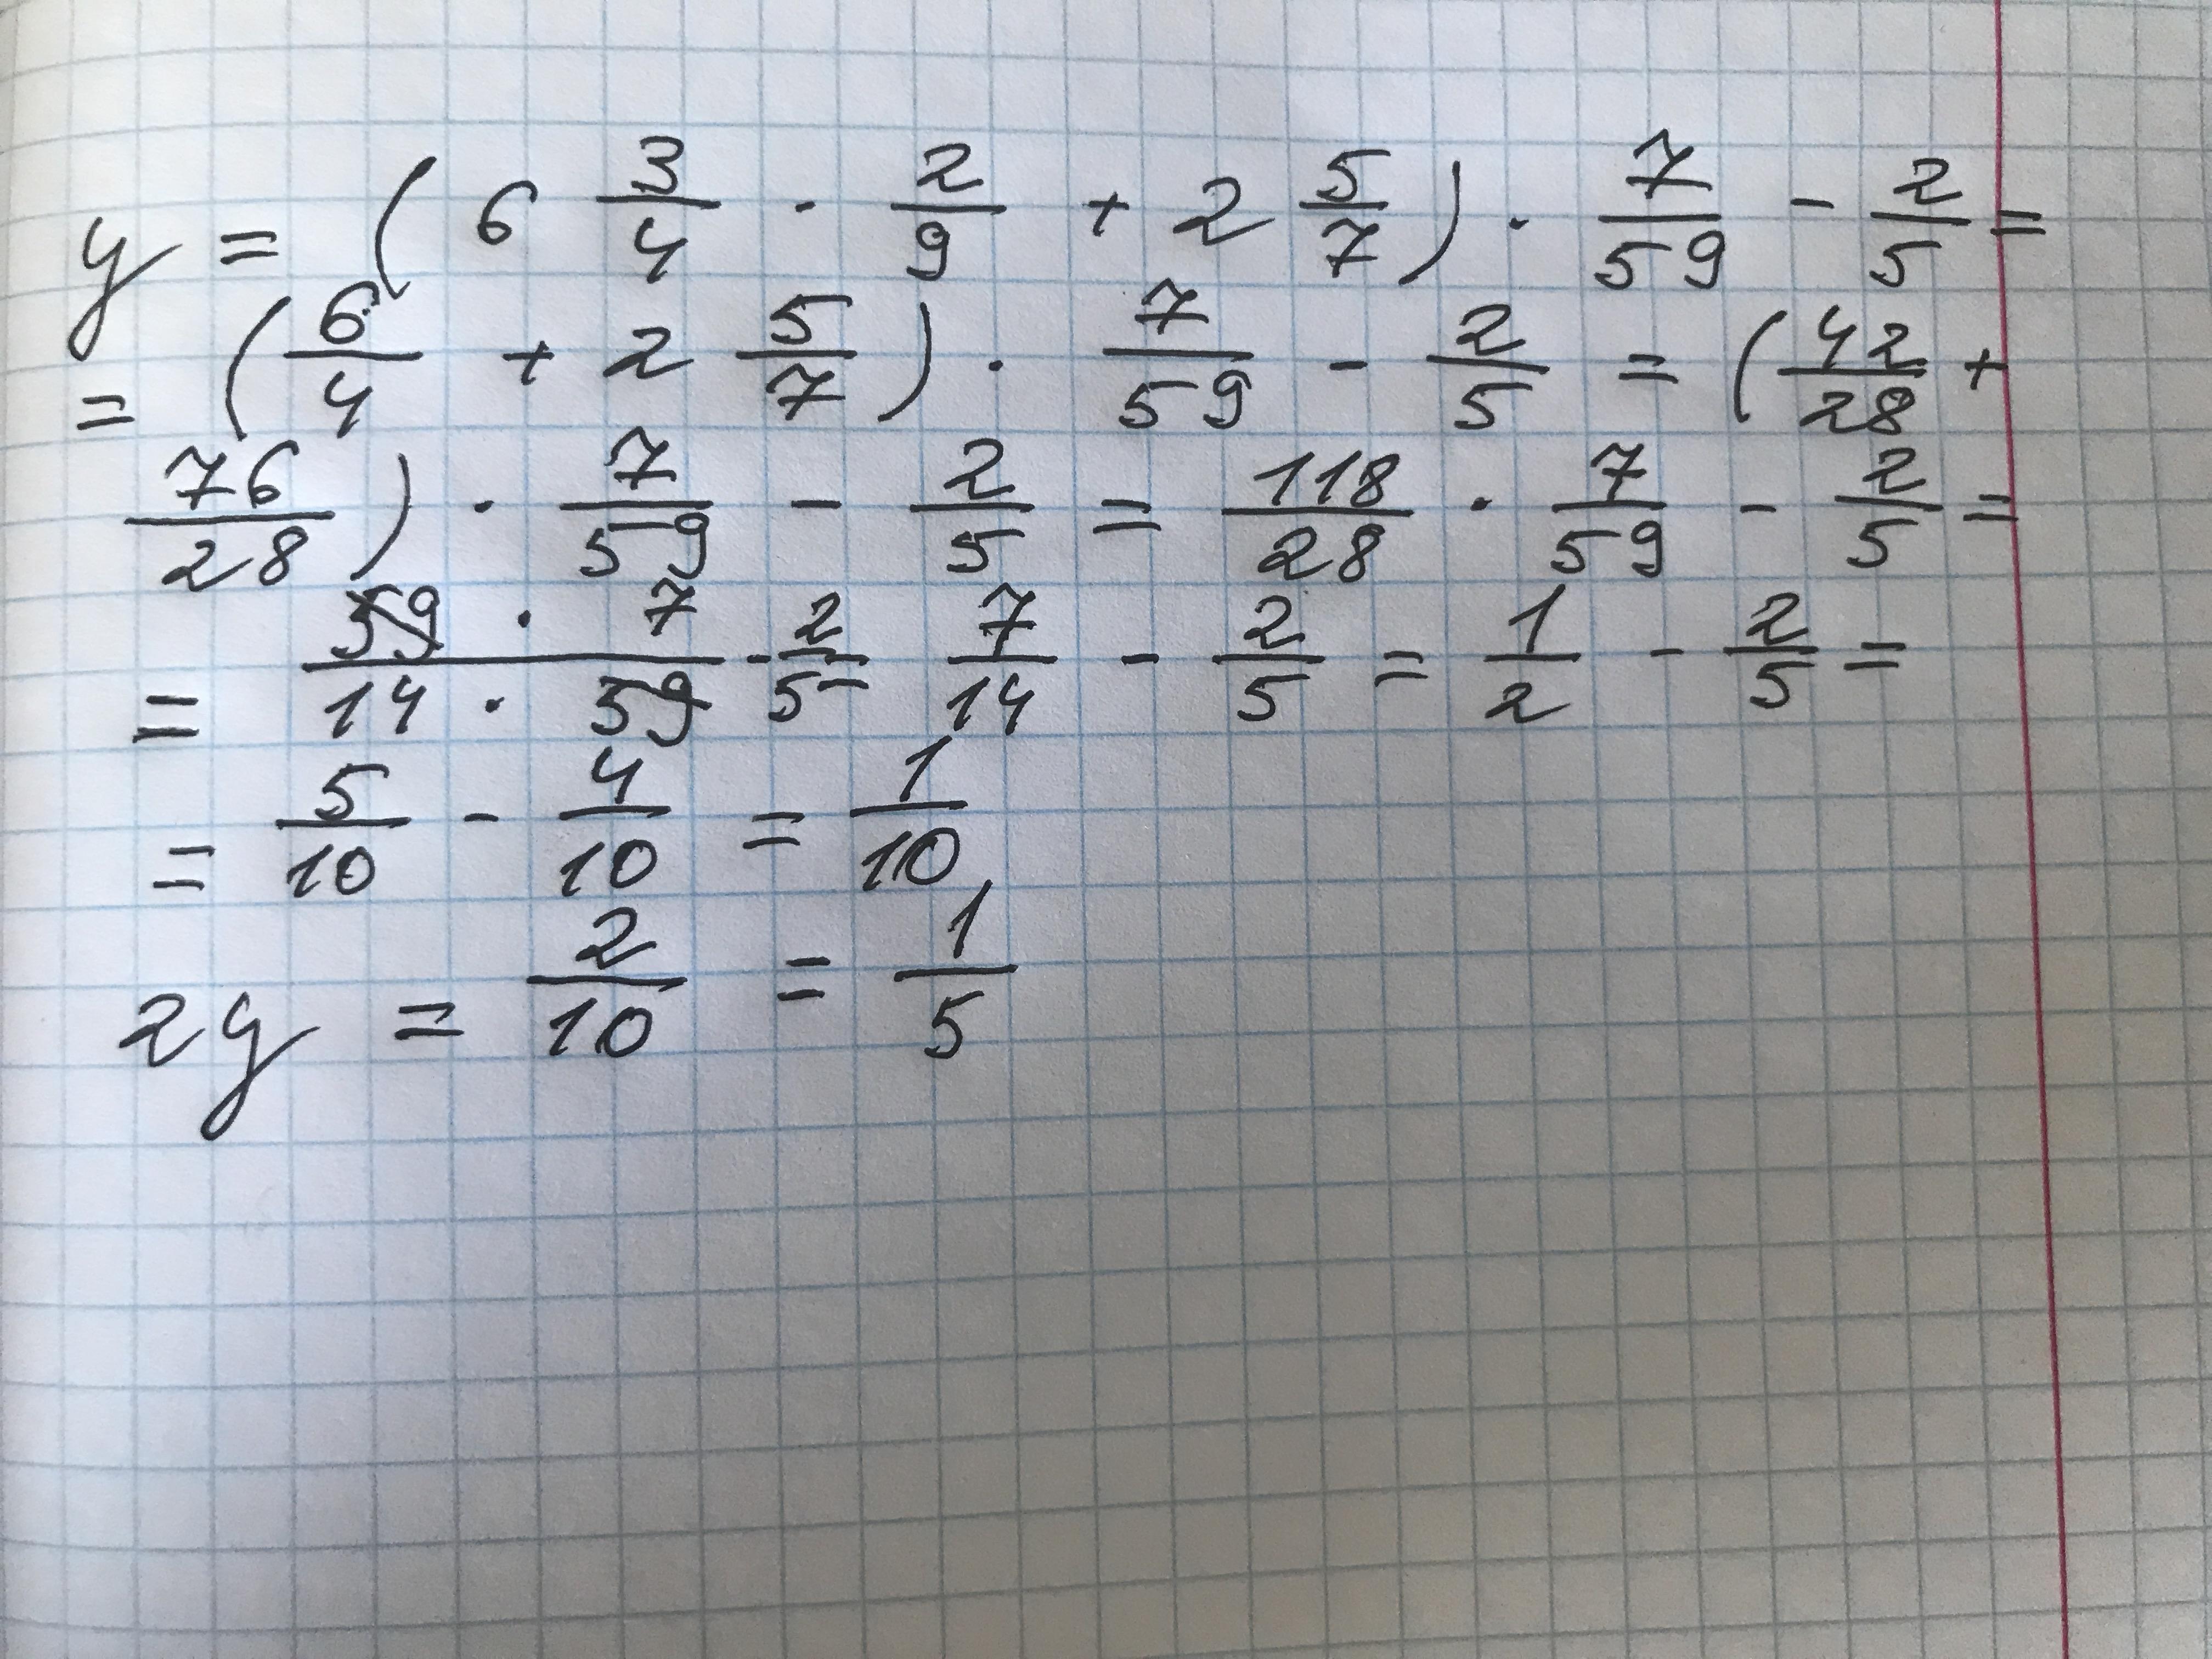 y = ( 6 3/4 · 2/9 + 2 5/7 ) · 7/59 - 2/5 =
= ( 6/4 + 2 5/7 ) · 7/59 - 2/5 = ( 42/28 +
76/28 ) · 7/59 - 2/5 = 118/28 · 7/59 - 2/5 =
= 59 · 7 / 14 · 59 - 2/5 = 7/14 - 2/5 = 1/2 - 2/5 =
= 5/10 - 4/10 = 1/10
2y = 2/10 = 1/5